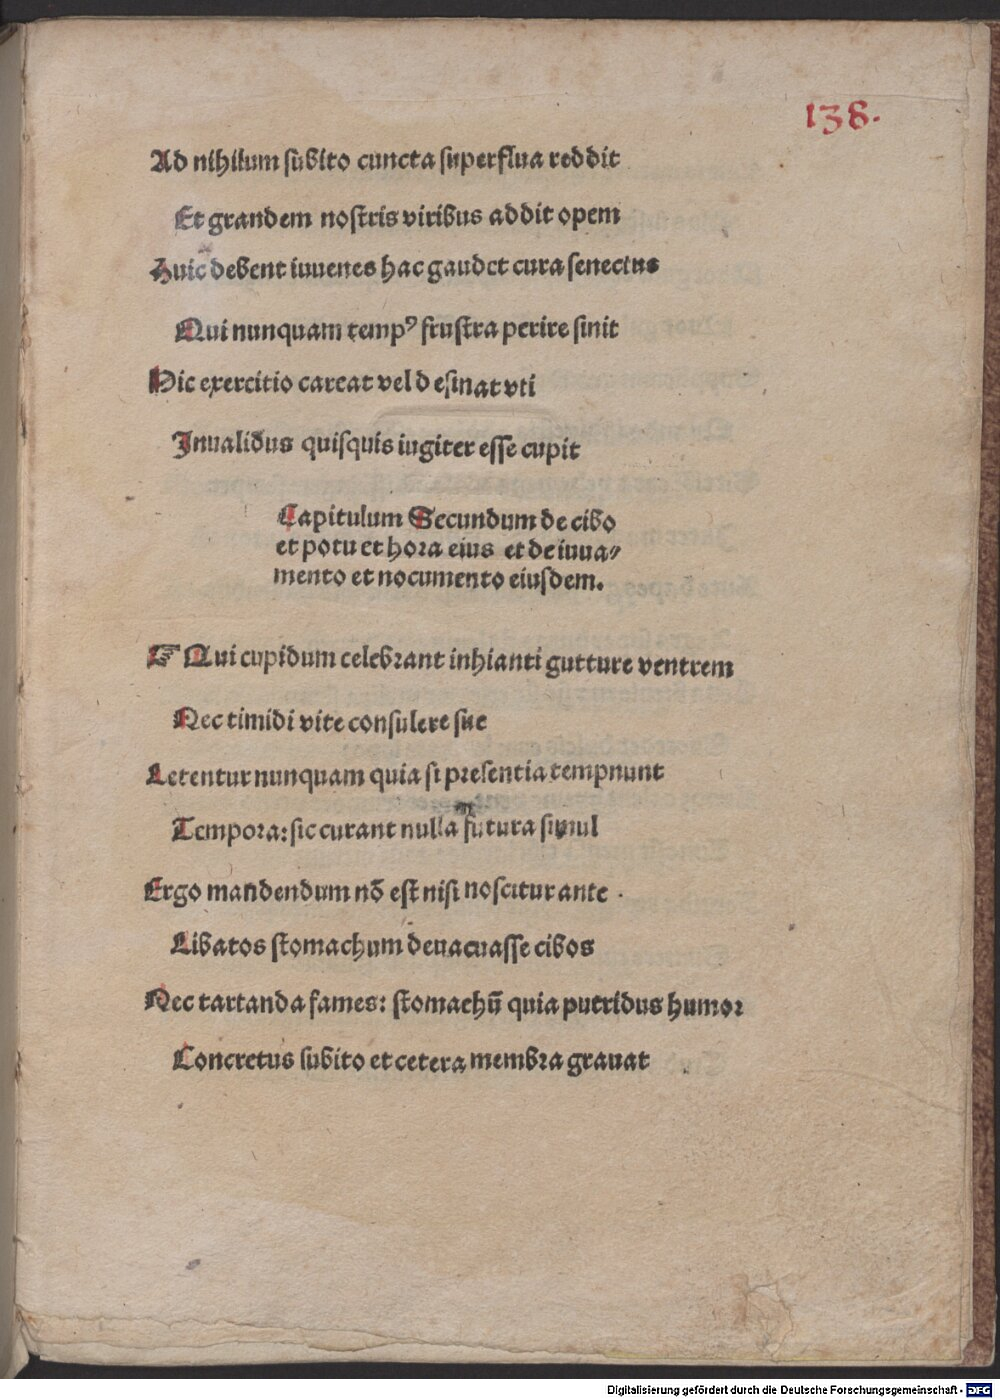 138.
Ad nihilum subito cuncta superflua reddit
Et grandem nostris viribus addit opem
Huic debent iuuenes hac gaudet cura senectus
Qui nunquam tempꝰ frustra perire sinit
Hic exercitio careat vel desinat vti
Inualidus quisquis iugiter esse cupit
Capitulum Secundum de cibo
et potu et hora eius et de iuua⸗
mento et nocumento eiusdem.
☞ Qui cupidum celebrant inhianti gutture ventrem
Nec timidi vite consulere sue
Letentur nunquam quia si presentia tempnunt
Tempora: sic curant nulla futura simul
Ergo mandendum nō est nisi noscitur ante
Libatos stomachum deuacuasse cibos
Nec tartanda fames: stomachū quia putridus humor
Concretus subito et cetera membra grauat
Digitalisierung gefördert durch die Deutsche Forschungsgemeinschaft - DFG